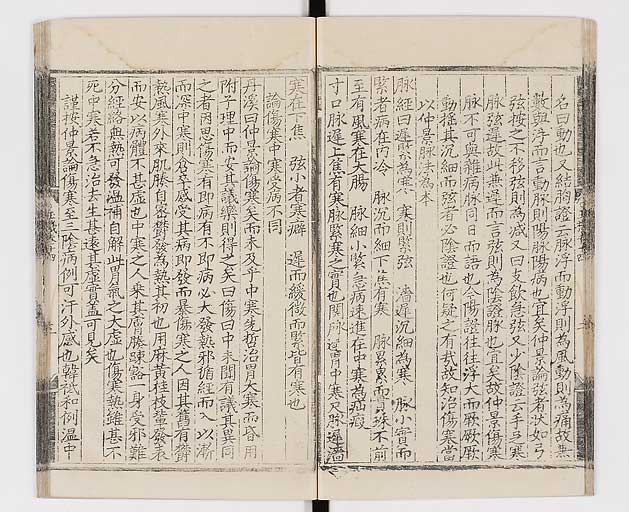 名曰動也又結胸證云脉浮而動浮則為風動則為痛故無
數與浮而言動脉則陽脉陽病也宜矣仲景論弦者狀如弓
弦按之不移弦則為減又曰支飲急弦又少陰證云手足寒
脉弦遲故此兼遲而言弦則為陰證脉也宜矣故仲景傷寒
脉不可與雜病脉同日而語也今陽證往往浮大而厥厥厥
動搖其沉細而弦者必陰證也何疑之有哉故知治傷寒當
以仲景脉法為本
脉經曰遲緊為寒 寒則緊弦 濇遲沉細為寒 脉小實而
緊者病在內冷 脉沉而細下焦有寒 脉累累而貫珠不前
至有風寒在大腸 脉細小緊急病速進在中寒為疝瘕
寸口脉遲上焦有寒脉緊寒之實也関脉遲胃中寒尺脉遲濇
寒在下焦 弦小者寒癖 遲而緩微而緊皆有寒也
論傷寒中寒受病不同
丹溪曰仲景論傷寒矣而未及乎中寒先哲治冒大寒而昏用
附子理中而安其議藥則得之矣曰傷曰中未聞有議其異同
之者因思傷寒有即病有不即病必大發熱邪循經而入以漸
而深中寒則倉卒感受其病即發而暴傷寒之人因其舊有欝
熱風寒外來肌腠自密欝發為熱其初也用麻黃桂枝輩發表
而安以病體不甚虛也中寒之人乘其腠踈豁一身受邪難
分經絡無熱可發溫補自解此胃氣之大虛也傷寒熱雖甚不
死中寒若不急治去生甚遠其虛實盖可見矣
謹按仲景論傷寒至三陰病例可汗外感也韓祗和例溫中